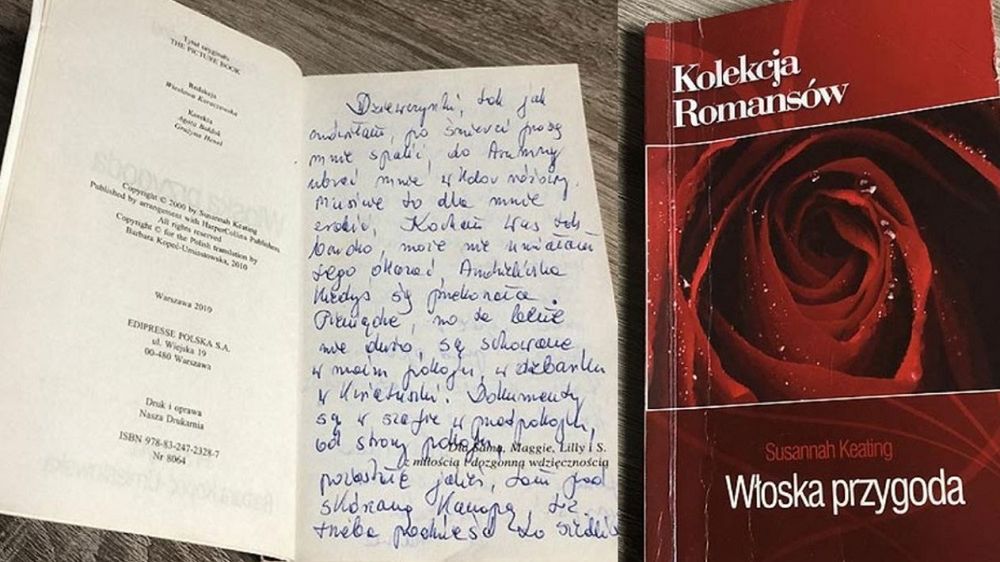 Tytuł oryginału
THE PICTURE BOOK
Redakcja
Wiesława Karaczewska
Korekta
Agata Bołdok
Grażyna Henel
Copyright © 2000 by Susannah Keating
Published by arrangement with HarperCollins Publishers.
All rights reserved
Copyright © for the Polish translation by
Barbara Kopeć-Umiastowska, 2010
Warszawa 2010
EDIPRESSE POLSKA S.A.
ul. Wiejska 19
00-480 Warszawa
Druk i oprawa
Nasza Drukarnia
ISBN 978-83-247-2328-7
Nr 8064
Dziewczynki, tak jak
mówiłam, po śmierci proszę
mnie spalić, do trumny
ubrać mnie w kolor różowy.
musicie to dla mnie
zrobić, Kocham was tak
bardzo, może nie umiałam
tego okazać,
kiedyś się przekonała.
Pieniądze, no te
nie dużo, są schowane
w moim pokoju, w dzbanku
w kwiatuszki! Dokumenty
są w szafie w przedpokoju,
od strony pokoju,
Dla Sama, Maggie, Lilly i S.
z miłością i dozgonną wdzięcznością
pozostałe jakieś, tam pod
skórzaną kanapą, też
trzeba podnieść do
Kolekcja
Romansów
Susannah Keating
Włoska przygoda